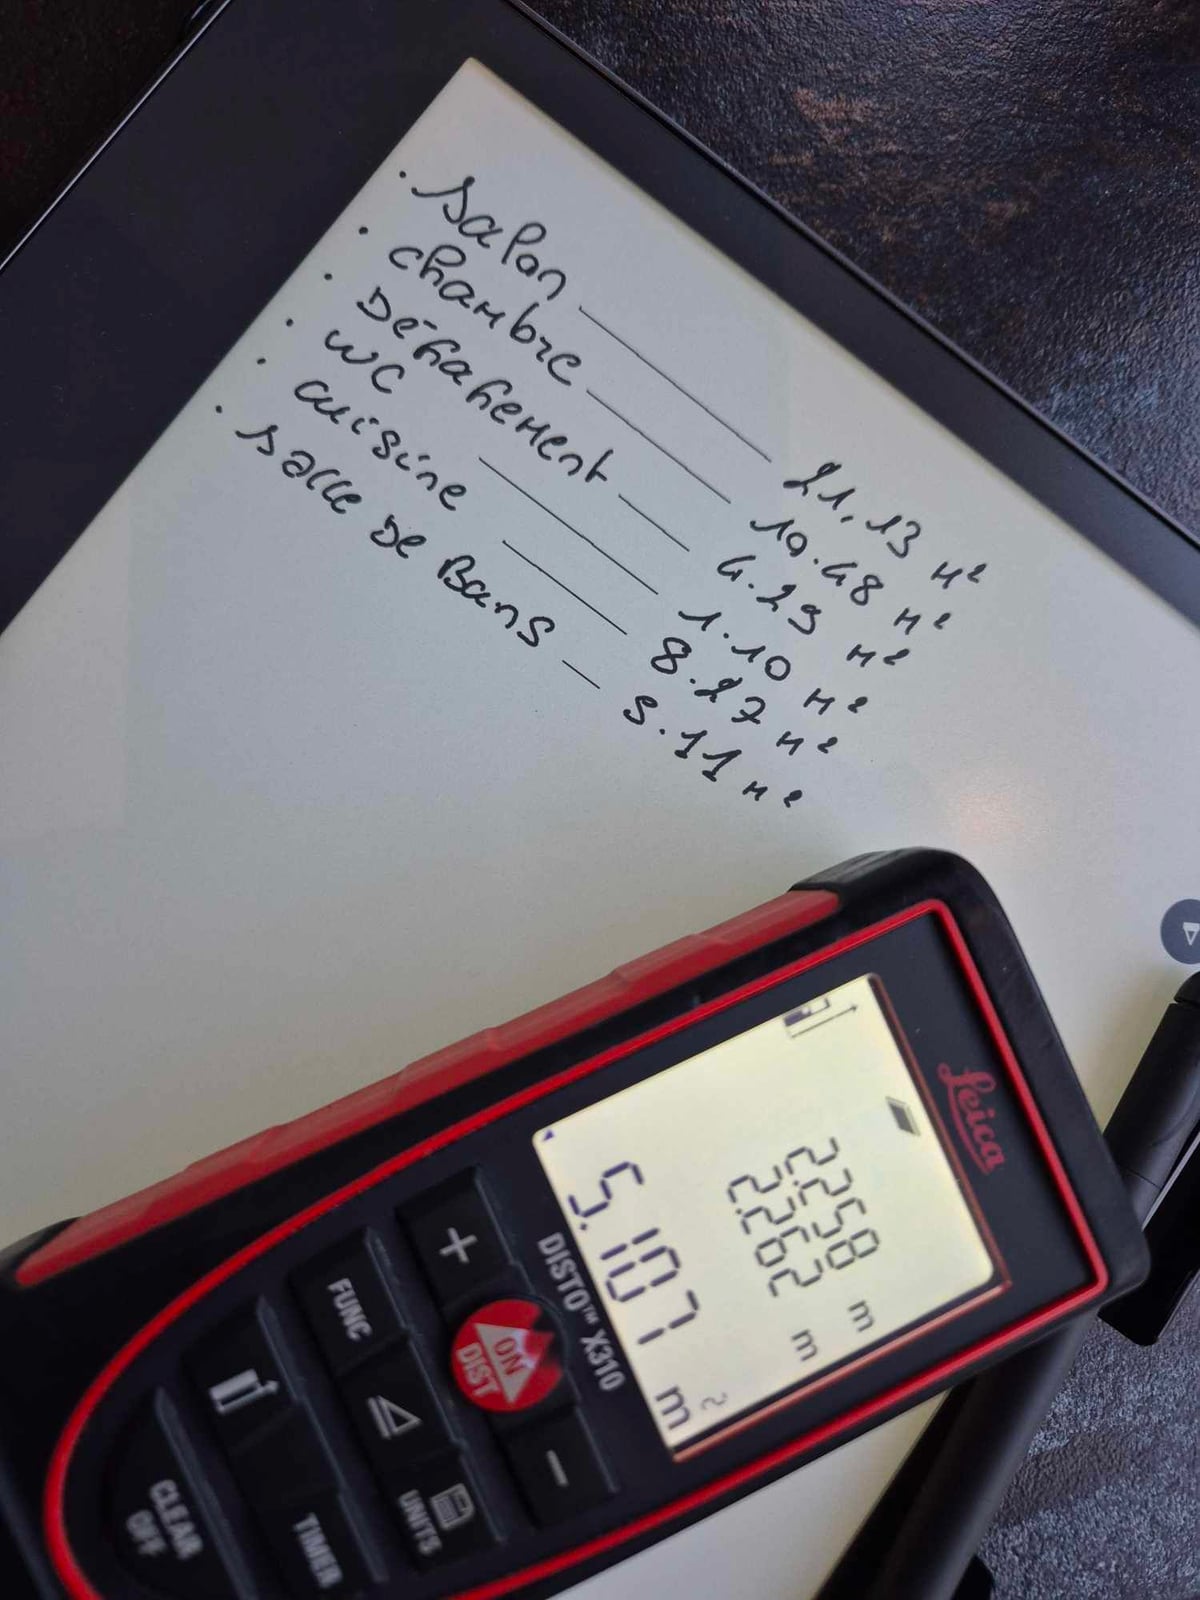 . Salon 21.13 m²
. chambre 10.48 m²
. Dégagement 4.29 m²
. WC 1.10 m²
. cuisine 8.27 m²
. Salle De Bans 5.11 m²
Leica
2.258 m
2.262 m
5.107 m²
DISTO™ X310
+
FUNC
ON
DIST
−
UNITS
CLEAR
OFF
TIMER